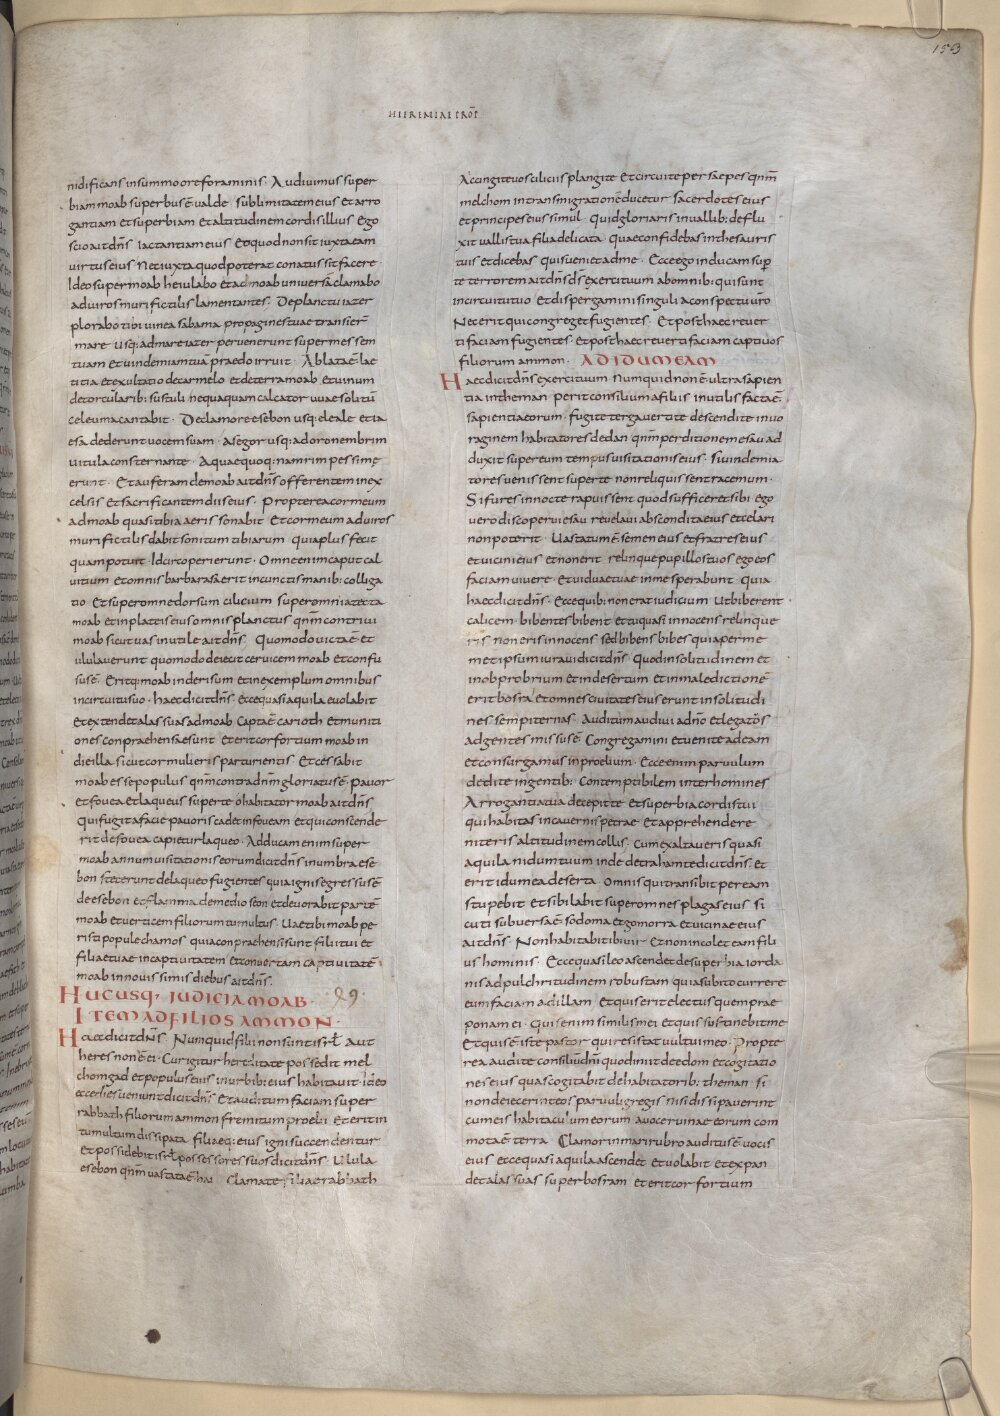 153
HIEREMIAE PROP̄
nidificans insummo ore foraminis. Audivimus super
biam moab superbus ē valde. sublimitatem eius et arro
gantiam et superbiam et altitudinem cordis illius Ego
scio ait dn̄s iactantiam eius Et quod non sit iuxta eam
virtus eius Nec iuxta quod poterat conata sit facere.
Ideo super moab heiulabo et ad moab universā clamabo
ad viros muri fictilis lamentantes. De planctu iazer
plorabo tibi vinea sabama propagines tuae transier̄
mare usq; ad mare iazer pervenerunt super messem
tuam et vindemiam tuam praedo irruit. Ablata ē lae
titia et exultatio de carmelo et de terra moab et vinum
de torcularib; sustuli nequaquam calcator uuae solitū
celeuma cantabit. De clamore esebon usq; eleale et ia
esa dederunt vocem suam. A segor usq; ad oronem brim
vitula consternante. Aquae quoq; namrim pessimę
erunt. Et auferam de moab ait dn̄s offerentem in ex
celsis et sacrificantem diis eius. Propterea cor meum
ad moab quasi tibia aeris sonabit Et cor meum ad viros
muri fictilis dabit sonitum tibiarum quia plus fecit
quam potuit. Idcirco perierunt. Omne enim caput cal
vitium et omnis barba rasa erit in cunctis manib; colliga
tio Et super omne dorsum cilicium super omnia tecta
moab et in plateis eius omnis planctus qnm̄ contrivi
moab sicut vas inutile ait dn̄s. Quomodo victa ē et
ululaverunt quomodo deiecit cervicem moab et confu
sus ē. Eritq; moab in derisum et in exemplum omnibus
in circuitu suo. haec dicit dn̄s. Ecce quasi aquila evolabit
et extendet alas suas ad moab Capta ē carioth et muniti
ones conprachensae sunt et erit cor fortium moab in
die illa sicut cor mulieris parturientis Et cessabit
moab esse populus qnm̄ contra dn̄m gloriatus ē. Pavor
et fovea et laqueus super te ó habitator moab ait dn̄s
qui fugit a facie pavoris cadet in foveam et qui conscende
rit de fovea capietur laqueo. Adducam enim super
moab annum visitationis eorum dicit dn̄s in umbra ese
bon steterunt de laqueo fugientes quia ignis egressus ē
de esebon et flamma de medio seon et devorabit partē
moab et verticem filiorum tumultus. Vae tibi moab pe
risti popule chamos quia conprachensi sunt filii tui et
filiae tuae in captivitatem et convertam captivitatē
moab in novissimis diebus ait dn̄s.
HUCUSQ; IUDICIA MOAB. 49.
ITEM AD FILIOS AMMON.
Haec dicit dn̄s Numquid filii non sunt isrl̄ Aut
heres non ē ei. Cur igitur hereditate possedit mel
chom gad et populus eius in urbib; eius habitavit ideo
ecce dies veniunt dicit dn̄s Et auditum faciam super
rabbath filiorum ammon fremitum proelii Et erit in
tumultum dissipata filiaeq; eius igni succendentur
Et possidebit isrl̄ possessores suos dicit dn̄s. Ulula
esebon qnm̄ vastata ē hai Clamate filiae rabbath
Accingite vos ciliciis plangite Et circuite per saepes qnm̄
melchom in transmigrationē ducetur sacerdotes eius
et principes eius simul Quid gloriaris in vallib; deflu
xit vallis tua filia delicata quae confidebas in thesauris
tuis et dicebas quis veniet ad me. Ecce ego inducam sup̄
te terrorem ait dn̄s ds̄ exercituum ab omnib; qui sunt
in circuitu tuo Et dispergamini singuli a conspectu vr̄o
Nec erit qui congreget fugientes Et post haec rever
ti faciam fugientes. Et post haec reverti faciam captivos
filiorum ammon. AD IDUMEAM
Haec dicit dn̄s exercituum Numquid non ē ultra sapien
tia in theman perit consilium a filiis inutilis facta ē
sapientia eorum. fugite tergavertite descendite in vo
raginem habitatores dedan qnm̄ perditionem esau ad
duxit super eum tempus visitationis eius. Si vindemia
tores venissent super te non reliquissent racemum.
Si fures in nocte rapuissent quod sufficeret sibi ego
vero discoperui esau revelavi abscondita eius et celari
non poterit Vastatum ē semen eius et fratres eius
et vicini eius et non erit relinque pupillos tuos ego eos
faciam vivere. Et viduae tuae in me sperabunt quia
haec dicit dn̄s. Ecce quib; non erat iudicium Ut biberent
calicem bibentes bibent et tu quasi innocens relinque
ris non eris innocens sed bibens bibes quia per me
met ipsum iuravi dicit dn̄s Quod in solitudinem et
in obprobrium et in desertum et in maledictionē
erit bosra et omnes civitates eius erunt in solitudi
nes sempiternas. Auditum audivi a dn̄o et legatos
ad gentes missus ē. Congregamini et venite ad eam
et consurgamus in proelium. Ecce enim parvulum
dedi te in gentib; Contemptibilem inter homines
Arrogantia tua decepit te Et superbia cordis tui
qui habitas in cavernis petrae Et apprehendere
niteris altitudinem collis. Cum exaltaveris quasi
aquila nidum tuum inde detraham te dicit dn̄s. et
erit idumea deserta Omnis qui transibit per eam
stupebit Et sibilabit super omnes plagas eius si
cuti subversa ē sodoma et gomorra et vicinae eius
ait dn̄s Non habitabit ibi vir Et non incolet eam fili
us hominis. Ecce quasi leo ascendet de superbia iorda
nis ad pulchritudinem robustam quia subito currere
eum faciam ad illam Et quis erit electus quem prae
ponam ei. Quis enim similis mei et quis sustinebit me
Et quis ē iste pastor qui resistat vultui meo. Propte
rea audite consiliū dn̄i quod iniit de edom et cogitatio
nes eius quas cogitabit de habitatorib; theman. Si
non deiecerint eos parvuli gregis nisi dissipaverint
cum eis habitaculum eorum A voce ruinae eorum com
mota ē terra. Clamor in mari rubro auditus ē vocis
eius et ecce quasi aquila ascendet et volabit et expan
det alas suas super bosram et erit cor fortium